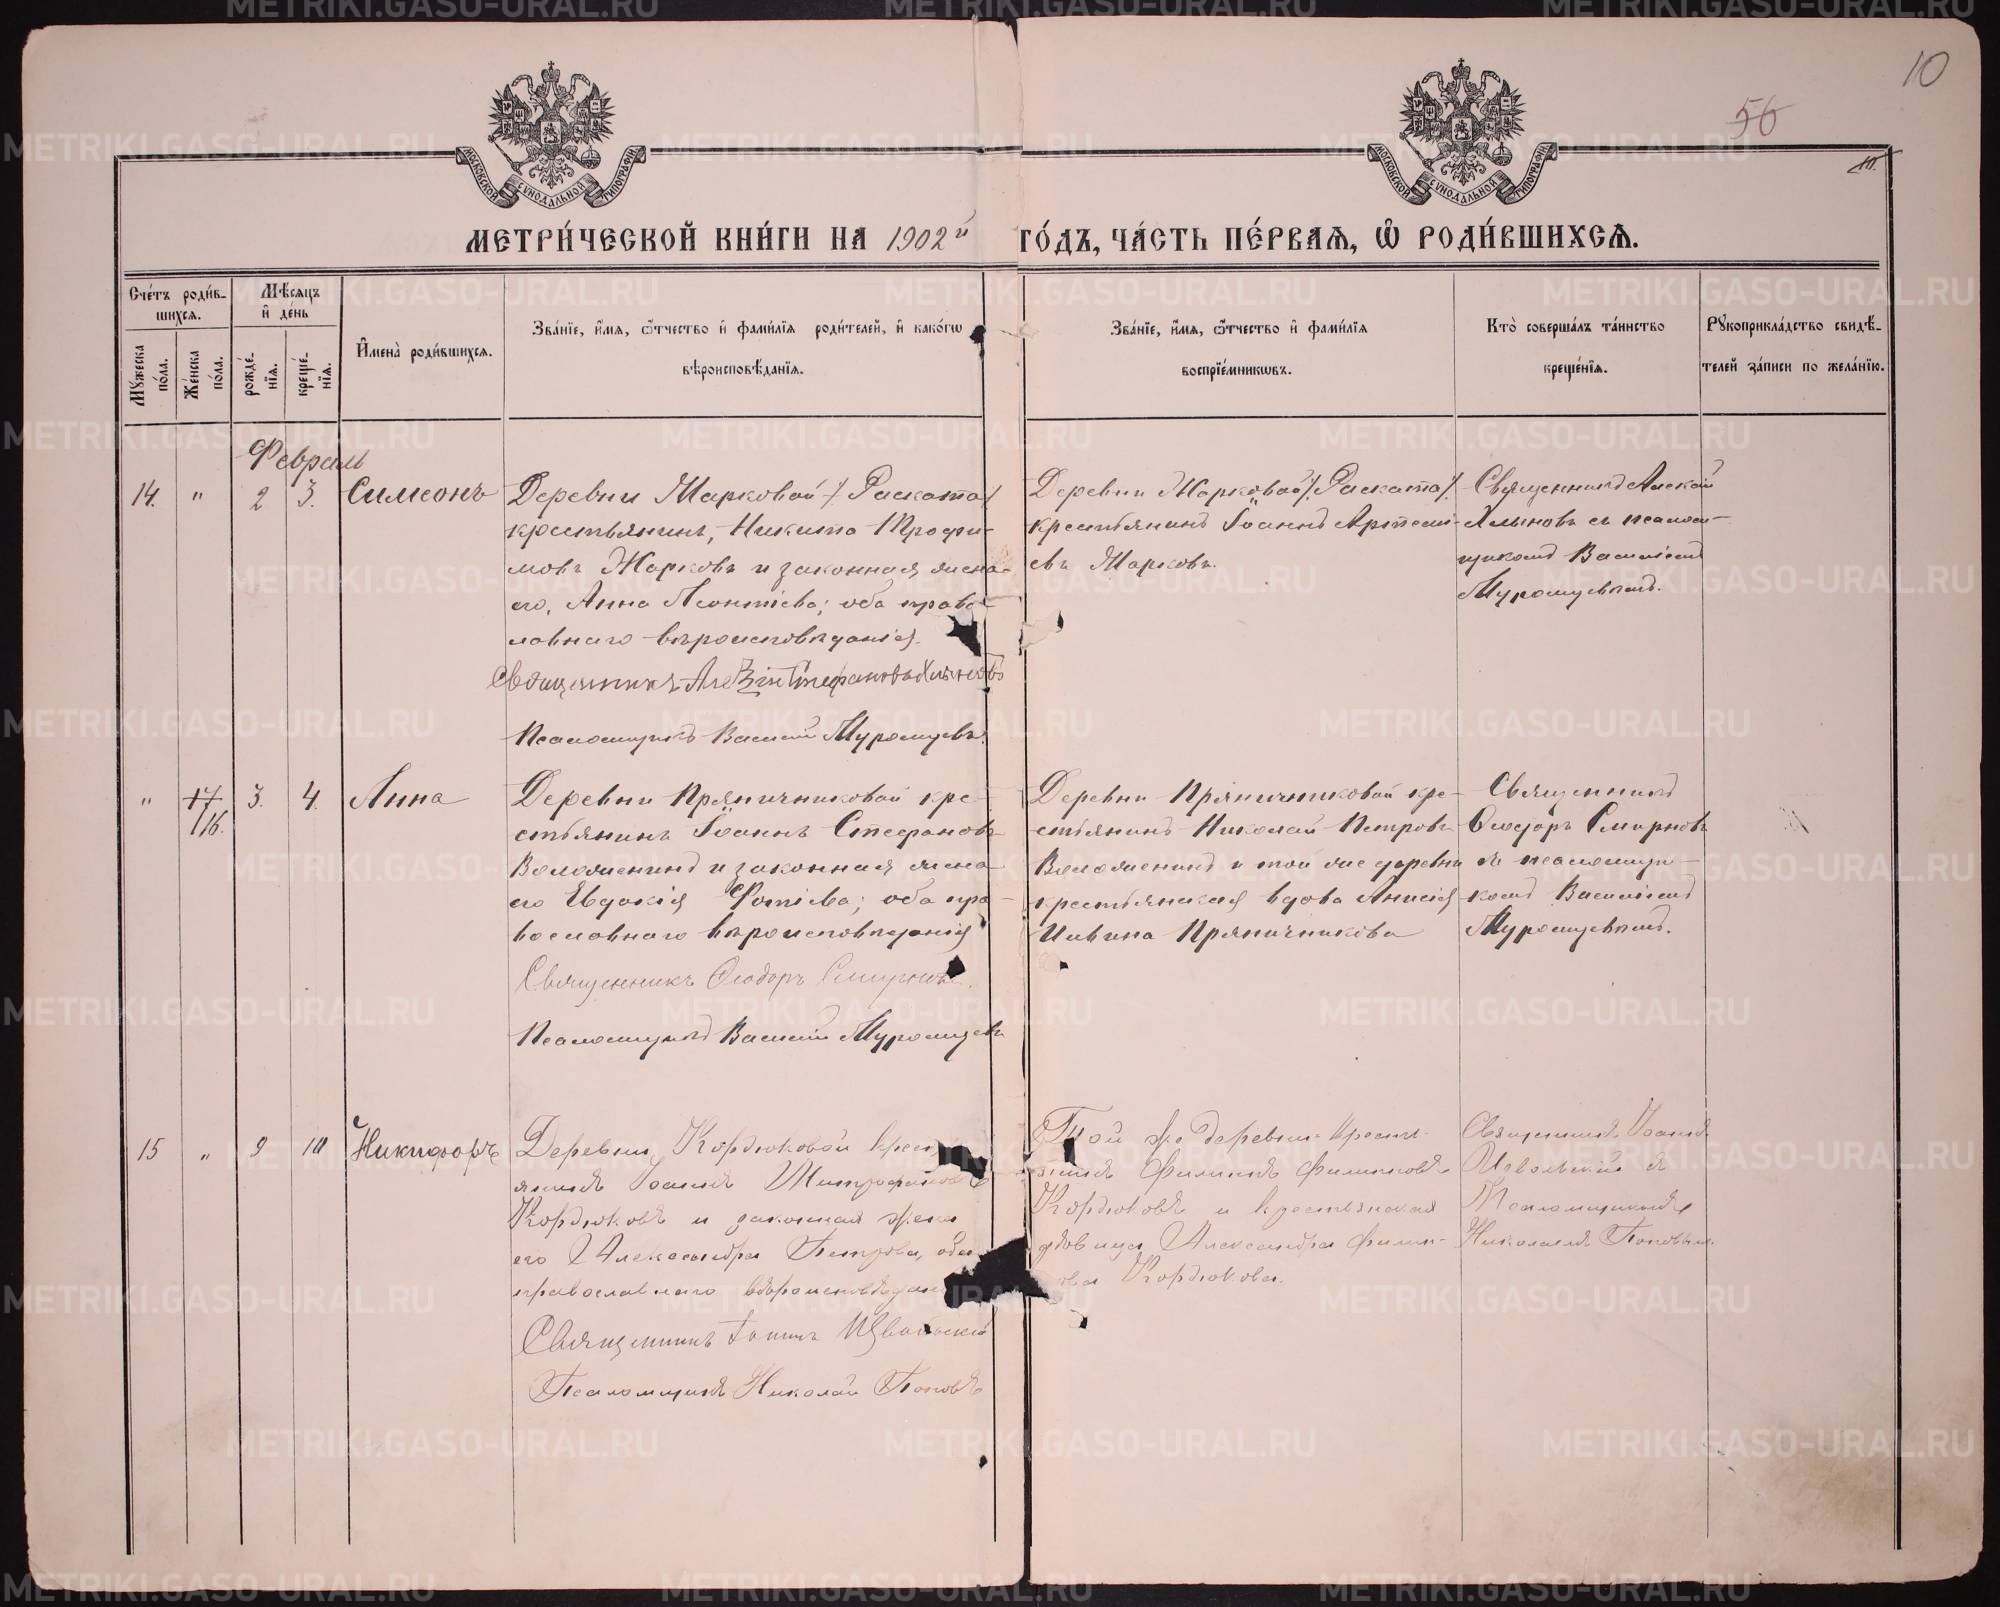 10
56
МОСКОВСКОЙ СѴНОДАЛЬНОЙ ТИПОГРАФІИ
МОСКОВСКОЙ СѴНОДАЛЬНОЙ ТИПОГРАФІИ
МЕТРИ́ЧЕСКОЙ КНИ́ГИ НА 1902й ГО́ДЪ, ЧА́СТЬ ПЕ́РВАѦ, Ѡ҆ РОДИ́ВШИХСѦ.
Сче́тъ роди́вшихсѧ.
Мꙋ́жеска по́ла.
Же́нска по́ла.
Мѣ́сѧцъ и҆ де́нь
рожде́нїѧ.
креще́нїѧ.
И҆мена̀ роди́вшихсѧ.
Зва́нїе, и҆́мѧ, ѻ҆́тчество и҆ фами́лїѧ роди́телей, и҆ како́гѡ
вѣроисповѣ́данїѧ.
Зва́нїе, и҆́мѧ, ѻ҆́тчество и҆ фами́лїѧ
воспрїе́мникѡвъ.
Кто̀ соверша́лъ та́инство
креще́нїѧ.
Рꙋкоприкла́дство свидѣ́телей за́писи по жела́нїю.
Февраль
14. " 2 3. Симеонъ
Деревни Марковой /Раската/
крестьянинъ, Никита Трофи-
мовъ Жарковъ и законная жена
его, Анна Леонтіева; оба право-
славнаго вѣроисповѣданія.
Священникъ Хлыновъ
Псаломщикъ Василій Муромцевъ.
Деревни Марковой /Раската/
крестьянинъ Іоаннъ Артемі-
евъ Марковъ.
Священникъ Алексій
Хлыновъ съ псалом-
щикомъ Василіемъ
Муромцевымъ.
" 17 16. 3. 4. Анна
Деревни Пряничниковой кре-
стьянинъ Іоаннъ Стефановъ
Воложенинъ и законная жена
его Евдокія Фотіева; оба пра-
вославнаго вѣроисповѣданія
Священникъ Ѳеодоръ Смирновъ.
Псаломщикъ Василій Муромцевъ
Деревни Пряничниковой кре-
стьянинъ Николай Петровъ
Воложенинъ и той же деревни
крестьянская вдова Анисія
Ильина Пряничникова
Священникъ
Ѳеодоръ Смирновъ
съ псаломщи-
комъ Василіемъ
Муромцевымъ.
15 " 9 10 Никифоръ
Деревни Кордюковой крест
янинъ Іоаннъ Митрофановъ
Кордюковъ и законная жена
его Александра Петрова, оба
православнаго вѣроисповѣдан
Священникъ Іоаннъ Извольскій
Псаломщикъ Николай Поповъ
Той же деревни крест-
янинъ Филиппъ Филипповъ
Кордюковъ и крестьянская
дѣвица Александра Филип-
ова Кордюкова.
Священникъ Іоаннъ
Извольскій съ
Псаломщикомъ
Николаемъ Поповым
METRIKI.GASO-URAL.RU